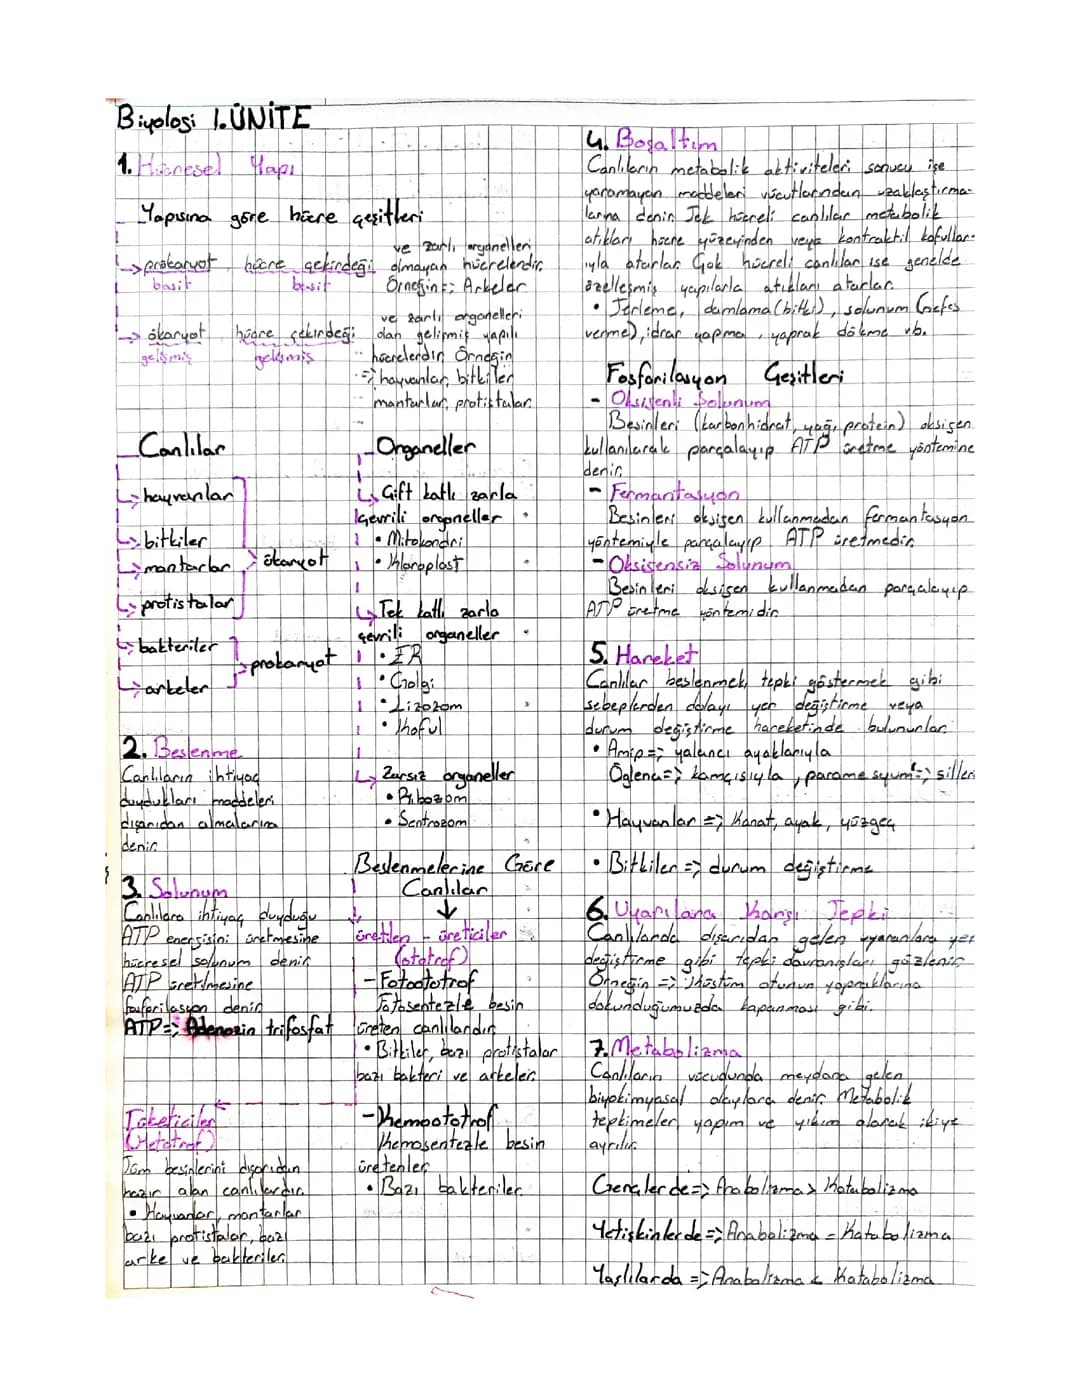 Biyoloji 1.ÜNİTE
1. Hücresel Yapı
Yapısına göre hücre çeşitleri
prokaryot hücre çekirdeği ve zarlı organelleri
olmayan hücrelerdir.
basit basit Örneğin=> Arkeler
ökaryot hücre çekirdeği ve zarlı organelleri
olan gelişmiş yapılı
gelişmiş gelişmiş hücrelerdir. Örneğin
=> hayvanlar, bitkiler
mantarlar, protistalar
Canlılar
hayvanlar
bitkiler
mantarlar ökaryot
protistalar
bakteriler
prokaryot
arkeler
Organeller
Çift katlı zarla
çevrili organeller
• Mitokondri
• Kloroplast
Tek katlı zarla
çevrili organeller
• ER
• Golgi
• Lizozom
• Koful
Zarsız organeller
• Ribozom
• Sentrozom
2. Beslenme
Canlıların ihtiyaç
duydukları maddeleri
dışarıdan almalarına
denir.
3. Solunum
Canlılara ihtiyaç duyduğu
ATP energisini üretmesine
hücresel solunum denir.
ATP üretilmesine
fosforilasyon denir.
ATP=> Adenozin trifosfat
Beslenmelerine Göre
Canlılar
üretilen - üreticiler
(ototrof)
- Fotoototrof
Fotosentezle besin
üreten canlılardır.
• Bitkiler, bazı protistalar
bazı bakteri ve arkeler.
- Kemoototrof
Kemosentezle besin
üretenler
• Bazı bakteriler.
Tüketiciler
(Hetotrof)
Tüm besinlerini dışarıdan
hazır alan canlılardır.
• Hayvanlar, mantarlar
bazı protistalar, bazı
arke ve bakteriler.
4. Boşaltım
Canlıların metabolik aktiviteleri sonucu işe
yaramayan maddeleri vücutlarından uzaklaştırma-
larına denir. Tek hücreli canlılar metabolik
atıkları hücre yüzeyinden veya kontraktil kofullar-
ıyla atarlar. Çok hücreli canlılar ise genelde
özelleşmiş yapılarla atıkları atarlar.
• Terleme, damlama (bitki), solunum (nefes
verme), idrar yapma, yaprak dökme vb.
Fosforilasyon Çeşitleri
- Oksijenli Solunum
Besinleri (karbonhidrat, yağ, protein) oksijen
kullanılarak parçalayıp ATP üretme yöntemine
denir.
- Fermantasyon
Besinleri oksijen kullanmadan fermantasyon
yöntemiyle parçalayıp ATP üretmedir.
- Oksijensiz Solunum
Besinleri oksijen kullanmadan parçalayıp
ATP üretme yöntemidir.
5. Hareket
Canlılar beslenmek, tepki göstermek gibi
sebeplerden dolayı yer değiştirme veya
durum değiştirme hareketinde bulunurlar.
• Amip=> yalancı ayaklarıyla
Öglena=> kamçısıyla, paramesyum=> silleri
• Hayvanlar => Kanat, ayak, yüzgeç
• Bitkiler => durum değiştirme
6. Uyarılara Karşı Tepki
Canlılarda dışarıdan gelen uyaranlara yer
değiştirme gibi tepki davranışları gözlenir.
Örneğin => Küstüm otunun yapraklarına
dokunduğumuzda kapanması gibi.
7. Metabolizma
Canlıların vücudunda meydana gelen
biyokimyasal olaylara denir. Metabolik
tepkimeler, yapım ve yıkım olarak ikiye
ayrılır.
Gençlerde=> Anabolizma > Katabolizma
Yetişkinlerde=> Anabolizma = Katabolizma
Yaşlılarda => Anabolizma < Katabolizma